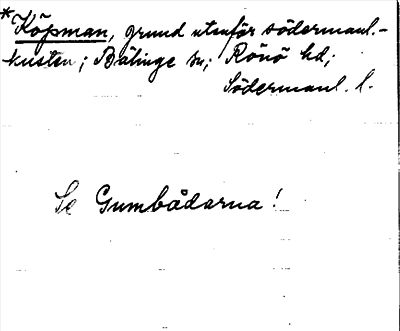 *Köpman, grund utanför södermanl.-
kusten; Bälinge sn; Rönö hd;
Södermanl. l.
Se Gumbådarna!